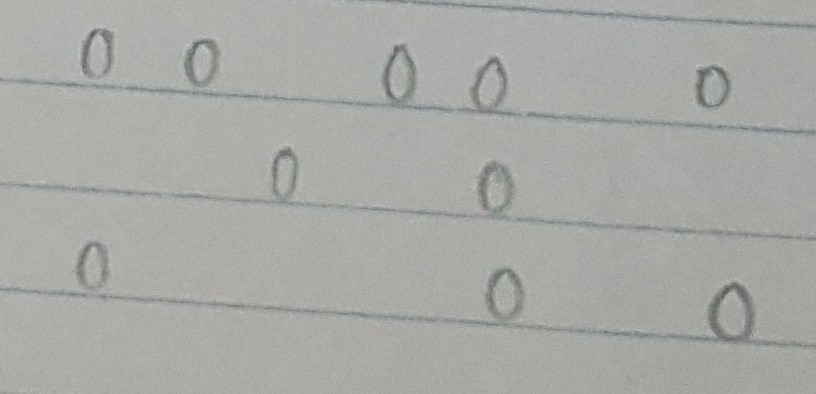 0 0 0 0 0
0 0
0 0 0